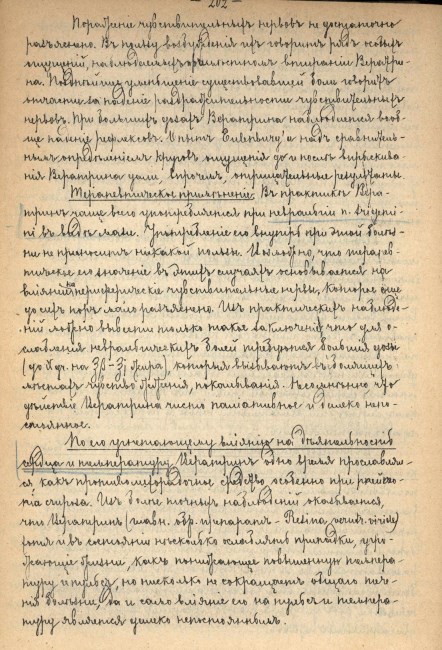 — 202 —
Пораженіе чувствительныхъ нервовъ не достаточно
разъяснено. Въ пользу возбужденія ихъ говоритъ рядъ особыхъ
ощущеній, наблюдаемыхъ при мѣстномъ втираніи Верат-
на. Позднѣйшее уменьшеніе существовавшей боли говоритъ
отчасти за паденіе раздражительности чувствительныхъ
нервовъ. При большихъ дозахъ Вератрина наблюдается вооб-
ще паденіе рефлексовъ. Опытъ надъ сравнитель-
нымъ опредѣленіемъ круговъ ощущенія до и послѣ впрыскива-
нія Вератрина дали, впрочемъ отрицательные результаты.
Терапевтическое примѣненіе. Въ практикѣ Вера-
тринъ чаще всего употребляется при невралгіи n. trigemi-
ni въ видѣ мази. Употребленіе его внутрь при этой болѣз-
ни не приноситъ никакой пользы. что терапев-
тическое его значеніе въ этихъ случаяхъ основывается на
вліяніи на периферическіе чувствительные нервы, которое еще
до сихъ поръ мало разъяснено. Изъ практическихъ наблюде-
ній можно вывести только такое заключеніе что для о-
слабленія невралгическихъ болей требуются большія дозы
(до на 3β—3j жира), которыя вызываютъ въ болящихъ
мѣстахъ чувство жженія, покалыванія. Несомнѣнно что
дѣйствіе Вератрина чисто палліативное и далеко непо-
стоянное.
По его угнетающему вліянію на дѣятельность
сердца и температуру, Вератринъ одно время прославлял-
ся какъ противолихорадочное средство особенно при
Изъ болѣе точныхъ наблюденій оказывается,
что Вератринъ (главн. обр. препаратъ — Resina veratr. viride)
хотя и въ состояніи нѣсколько ослаблять припадки, угро-
жающіе жизни, какъ понижающее повышенную темпера-
туру и пульсъ, но нисколько не сокращаетъ общаго тече-
нія болѣзни, да и само вліяніе его на пульсъ и темпера-
туру является далеко непостояннымъ.